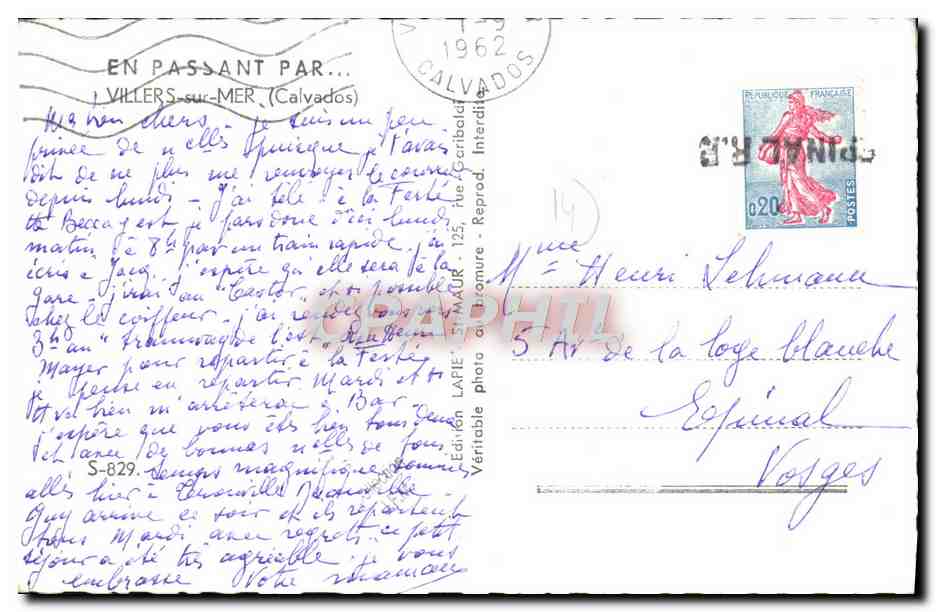 1-9
1962
CALVADOS
EN PASSANT PAR...
VILLERS-sur-MER (Calvados)
Mes bien chers, je suis un peu
privée de nelles puisque je t'avais
dit de ne plus me renvoyer le courrier
depuis lundi - J'ai télé à la Ferté
je pars donc d'ici lundi
matin à 8h par un train rapide, j'ai
écris à Jacq. j'espère qu'elle sera à la
gare - j'irai au "Castor" et si possible
chez le coiffeur - j'ai rendez vous vers
3h au "tramway de l'est"
Mayer pour repartir à "la Ferté
pense en repartir Mardi et si
tout va bien m'arrêterai à Bar -
j'espère que vous êtes bien tous deux
et avec de bonnes nelles de tous
S-829.
temps magnifique sommes
allés hier à
Guy arrive ce soir et ils repartent
tous Mardi avec regrets - ce petit
séjour a été très agréable - je vous
embrasse Votre maman
Edition LAPIE ST-MAUR - 125, rue Garibaldi
Véritable photo au bromure - Reprod. Interdite
CPAPHIL
14
REPUBLIQUE FRANÇAISE
0.20
POSTES
EPINAL R.P
Mme Henri Lehmann
5 Av. de la loge blanche
Epinal
Vosges